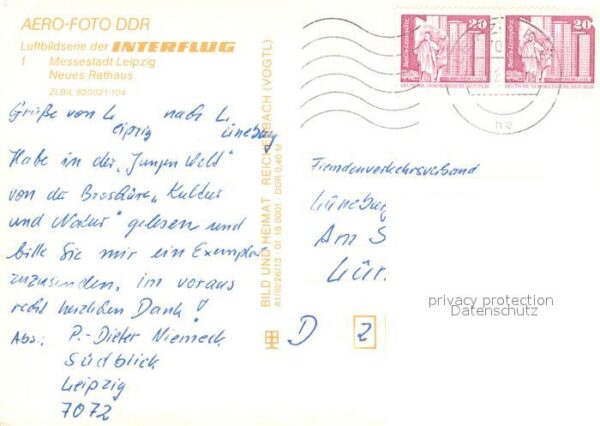 AERO-FOTO DDR
Luftbildserie der INTERFLUG
1 Messestadt Leipzig
Neues Rathaus
ZLB/L 820021-104
Grüße von Leipzig nach Lüneburg
Habe in der „Jungen Welt"
von der Broshüre „Kultur
und Natur" gelesen und
bitte Sie mir ein Exemplar
zuzusenden, im voraus
recht herzlichen Dank!
Abs.: P.-Dieter Niemeck
Südblick
Leipzig
7072
BILD UND HEIMAT REICHENBACH (VOGTL)
A1/III/26/13 01 18 0001 DDR 0,40 M
20
Berlin-Leninplatz
DEUTSCHE DEMOKRATISCHE REPUBLIK
20
Berlin-Leninplatz
DEUTSCHE DEMOKRATISCHE REPUBLIK
Fremdenverkehrsverband
Lüneburg
Am S
Lün.
D 2
privacy protection
Datenschutz